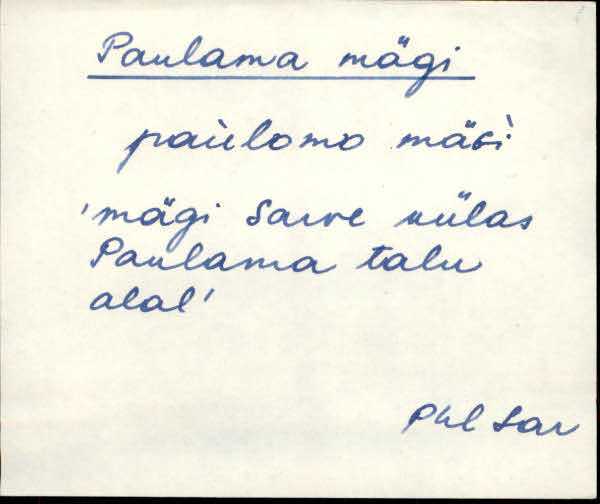 Paulama mägi
paùlomo mäɢì
'mägi Sarve külas
Paulama talu
alal'
Phl Sar